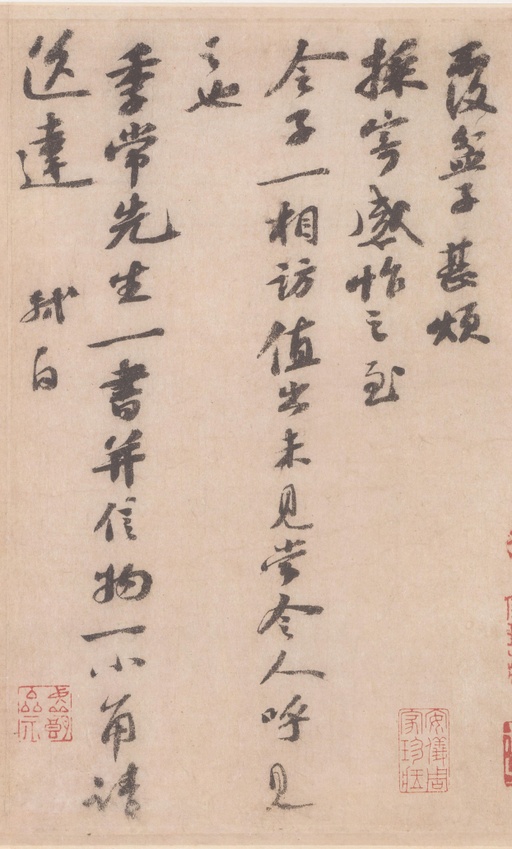 覆盆子甚煩
採寄感怍之至
令子一相訪值出未見當令人呼見
之也
季常先生一書并信物一小角請
送達
軾白
安儀周家珍藏